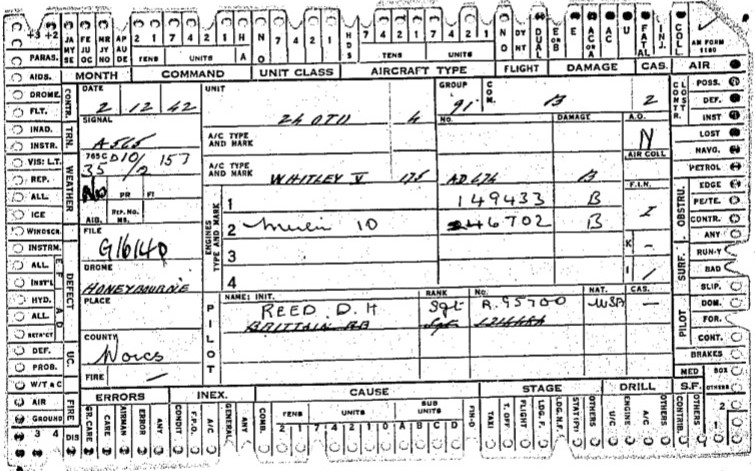 +3 +2 JA MY SE FE JU OC MR JY NO AP AU DE 2 1 7 4 2 1 H A NO 7 4 2 1 HDS 7 4 2 1 7 4 2 1 NO DY NT DUAL E OR B E AC OR A AC U FATAL INJ. COLL AM FORM 1180
TENS UNITS TENS UNITS
PARAS. MONTH COMMAND UNIT CLASS AIRCRAFT TYPE FLIGHT DAMAGE CAS. AIR
AIDS.
DROME.
FLT.
INAD.
INSTR.
VIS: L.T.
REP.
ALL
ICE
WINDSCR.
INSTRM.
ALL
INST'L
HYD.
ALL
DEF.
PROB.
W/T & C
AIR
GROUND
3 4
CONTR.
TRN.
WEATHER
DEFECT
UC.
FIRE
DIS
DATE
2 12 42
SIGNAL
A565
765C D10/2 153
35
No PR FT
AID. REP. NO. MS.
FILE
G16140
DROME
HONEYBOURNE
PLACE
COUNTY
Worcs
FIRE —
UNIT
24 OTU 4
GROUP
91
COM.
B 2
A/C TYPE AND MARK
NO. DAMAGE A.O.
N
AIR COLL
A/C TYPE AND MARK WHITLEY V 175 AD 676 B
F.I.N.
ENGINES TYPE AND MARK
1 149433 B
2 Merlin 10 46702 B I
3 K –
4 I /
PILOT
NAME: INIT. RANK NO. NAT. CAS.
REED. D. H Sgt R.95700 USA —
BRITTAIN
CONTR. CLOST
OBSTRU.
SURF.
PILOT
POSS.
DEF.
INST
LOST
NAVG.
PETROL
EDGE
PE/TE.
CONTR.
ANY
RUN-Y
BAD
SLIP.
DOM.
FOR.
CONT.
BRAKES
MED BOX
S.F. OTHERS
2
1
ERRORS INEX. CAUSE STAGE DRILL
GR. CARE CARE AIRMAN ERROR ANY CONDIT F.P.O. A/C GENERAL ANY COMB. TENS UNITS SUB UNITS FIN-O TAXI T. OFF FLIGHT LDG. F. LDG. N.F. STAT/PH OTHERS U/C ENGINE A/C OTHERS CONTRIB. OTHERS
2 1 7 4 2 1 0 A B C D